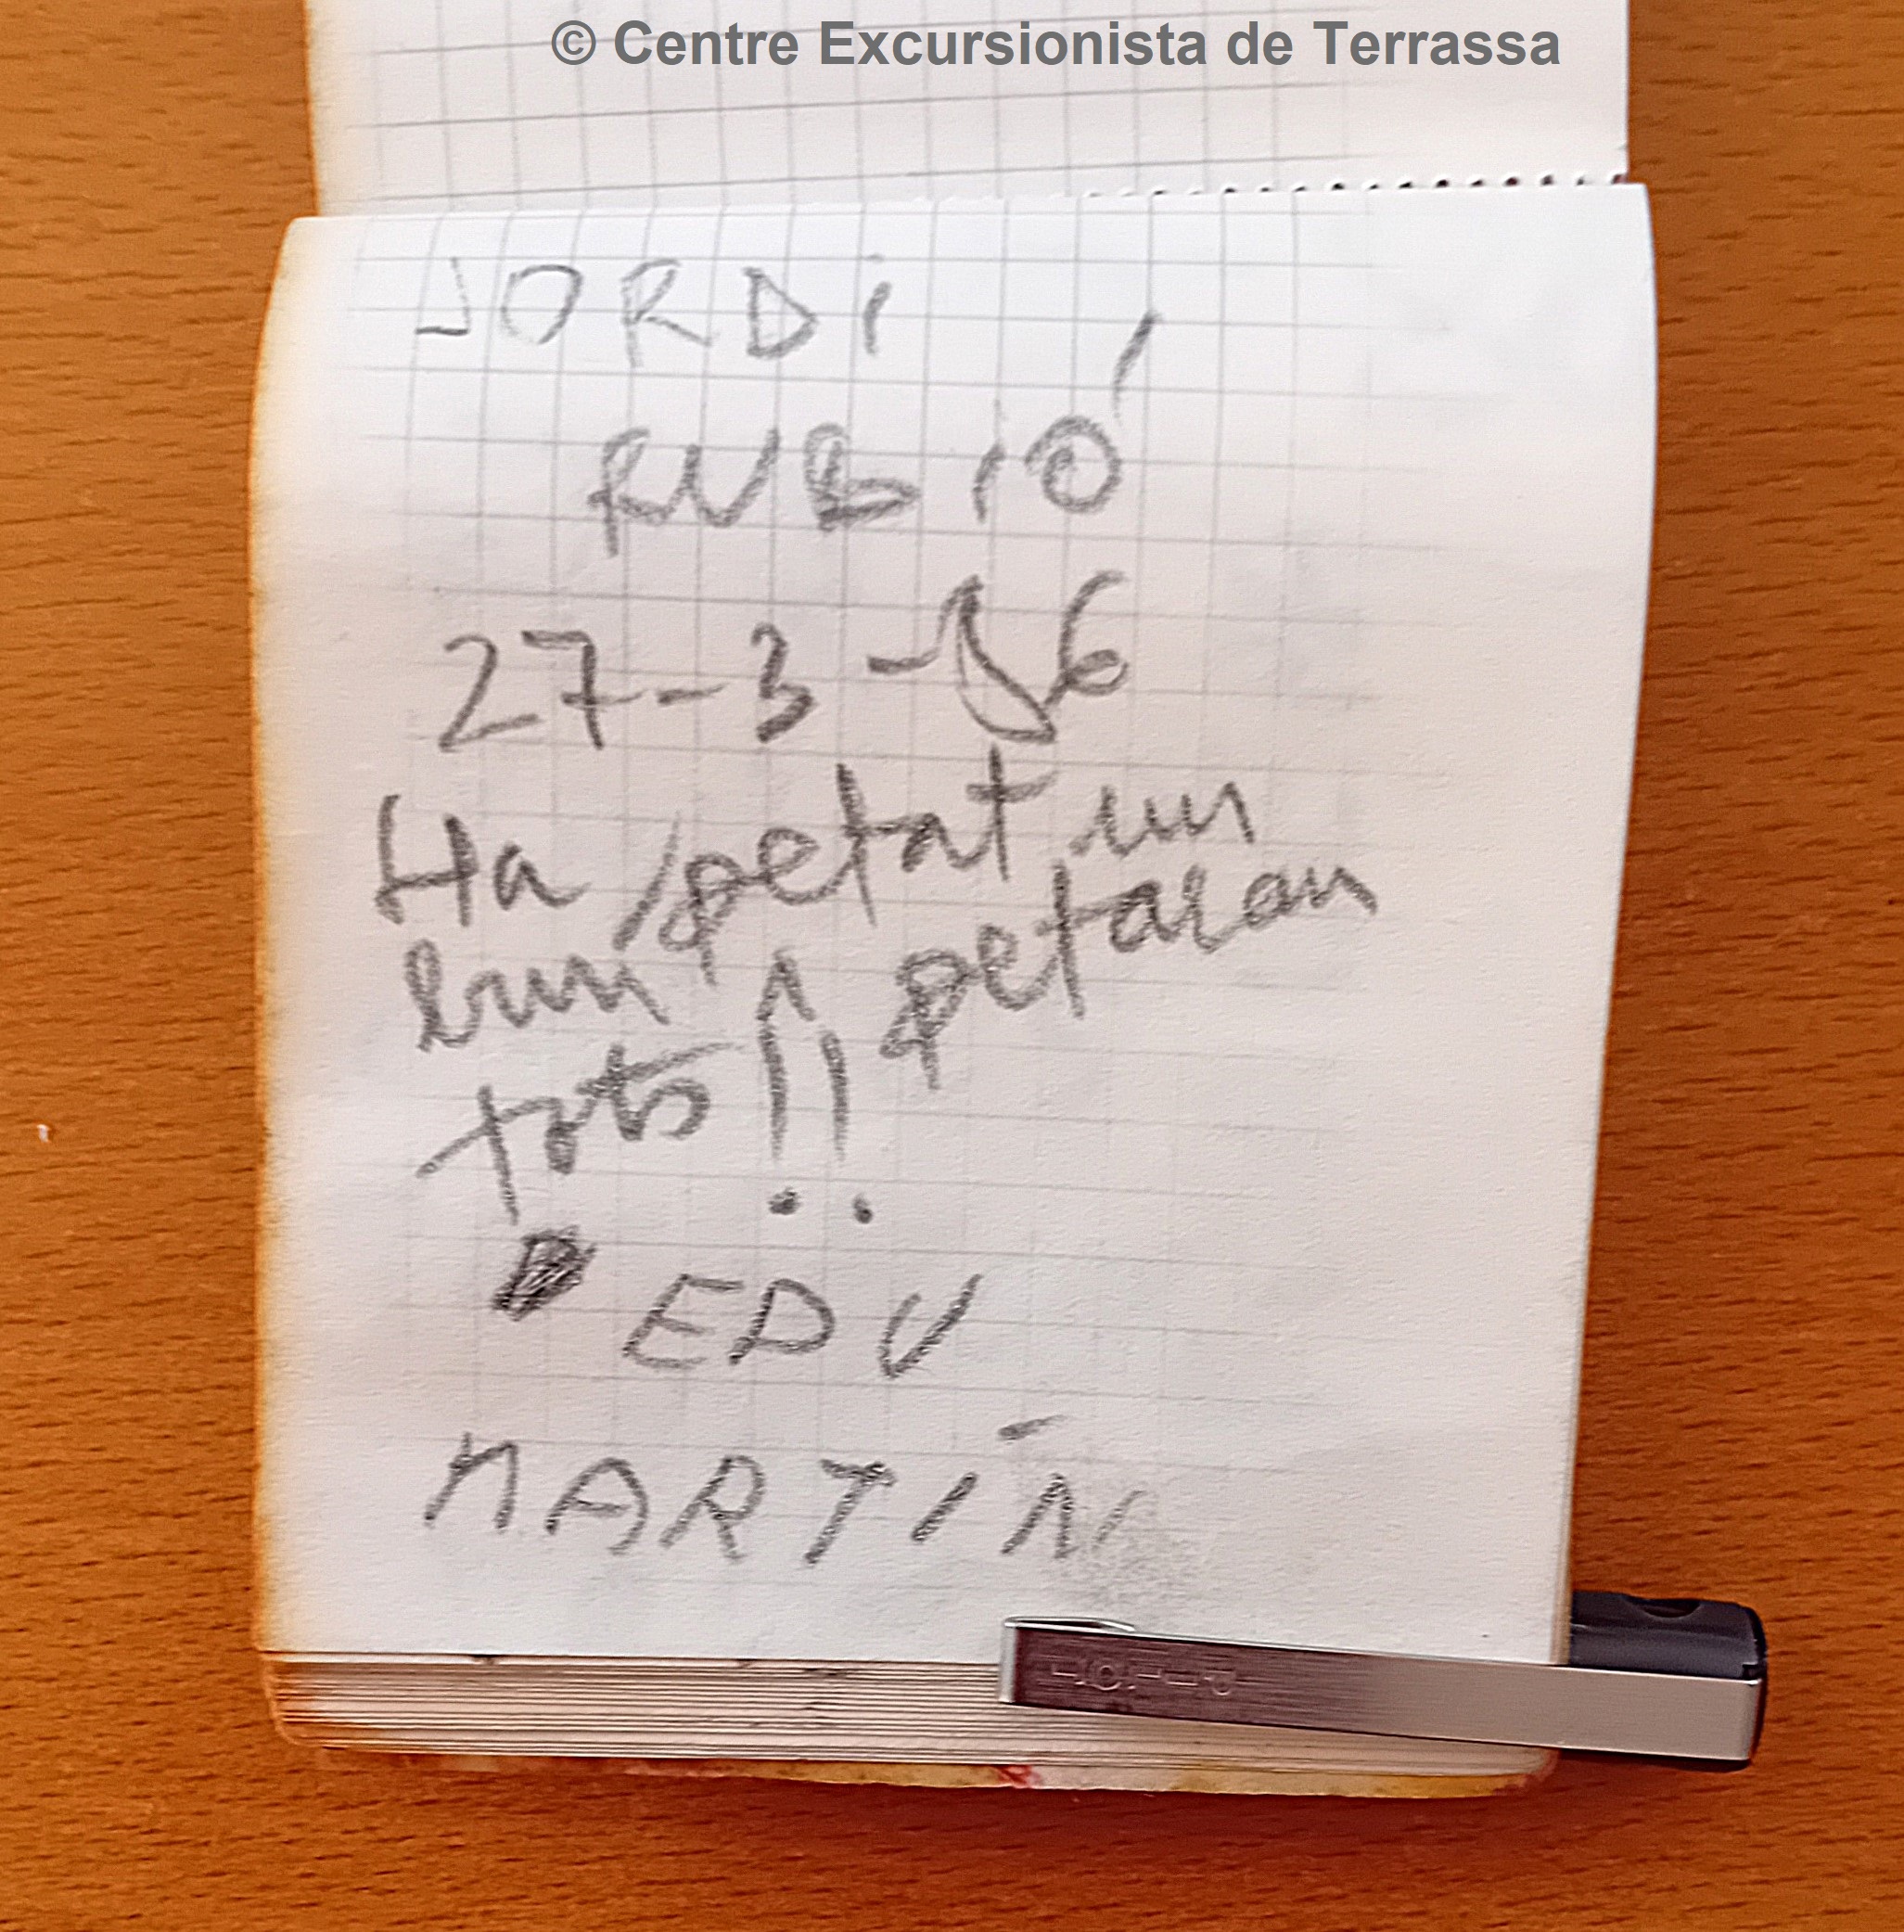 © Centre Excursionista de Terrassa
JORDi
RUBIÓ
27-3-86
Ha petat un
bum petaran
tots!!
EDU
MARTÍN
PILOT